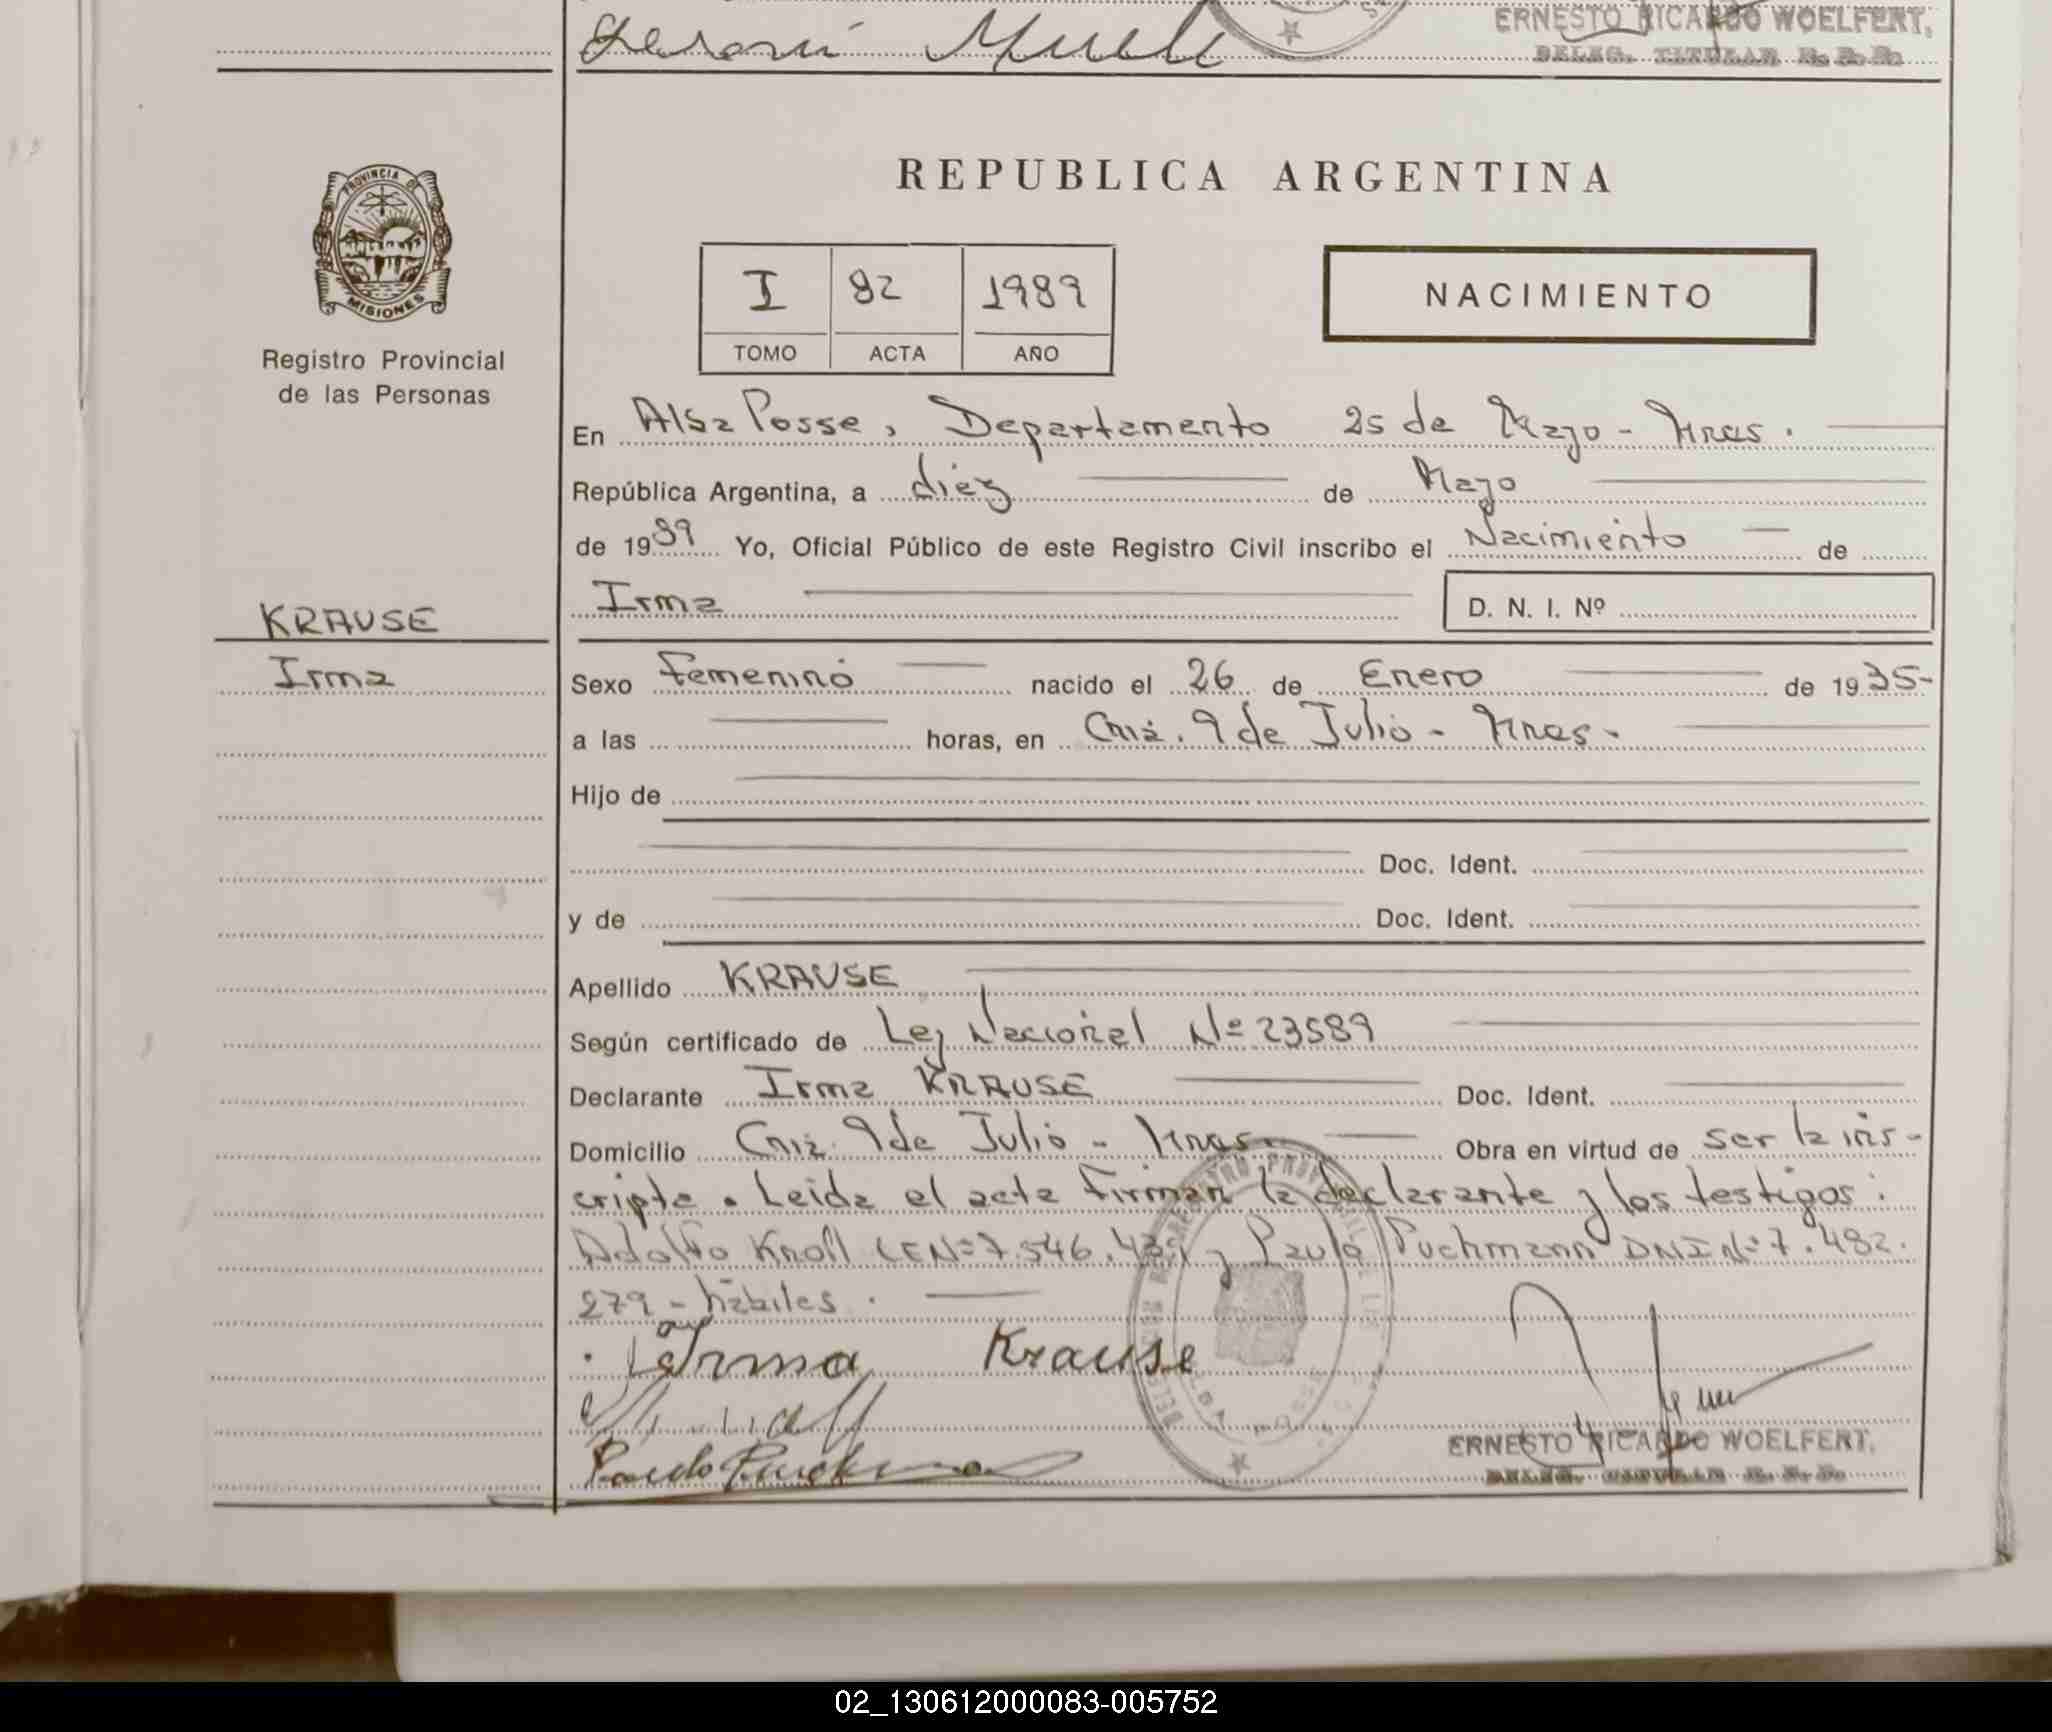 ERNESTO RICARDO WOELFERT,
DELEG. TITULAR R. P. P.
PROVINCIA DE
MISIONES
Registro Provincial
de las Personas
REPUBLICA ARGENTINA
I 82 1989
TOMO ACTA AÑO
NACIMIENTO
En Alba Posse, Departamento 25 de Mayo - Mnes.
República Argentina, a diez de Mayo
de 1989 Yo, Oficial Público de este Registro Civil inscribo el Nacimiento de
Irma
D. N. I. Nº
KRAUSE
Irma
Sexo Femenino nacido el 26 de Enero de 1935-
a las horas, en Cnia. 9 de Julio - Mnes-
Hijo de
Doc. Ident.
y de Doc. Ident.
Apellido KRAUSE
Según certificado de Ley Nacional Nº 23589
Declarante Irma KRAUSE Doc. Ident.
Domicilio Cnia. 9 de Julio - Mnes- Obra en virtud de ser la ins-
cripta. Leída el acta firman la declarante y los testigos:
Adolfo Knoll LE Nº 7.546. y Paulo Puchmann DNI Nº 7.482.
279 - hábiles.
Irma Krause
Paulo Puchmann
ERNESTO RICARDO WOELFERT,
DELEG. TITULAR R. P. P.
02_130612000083-005752